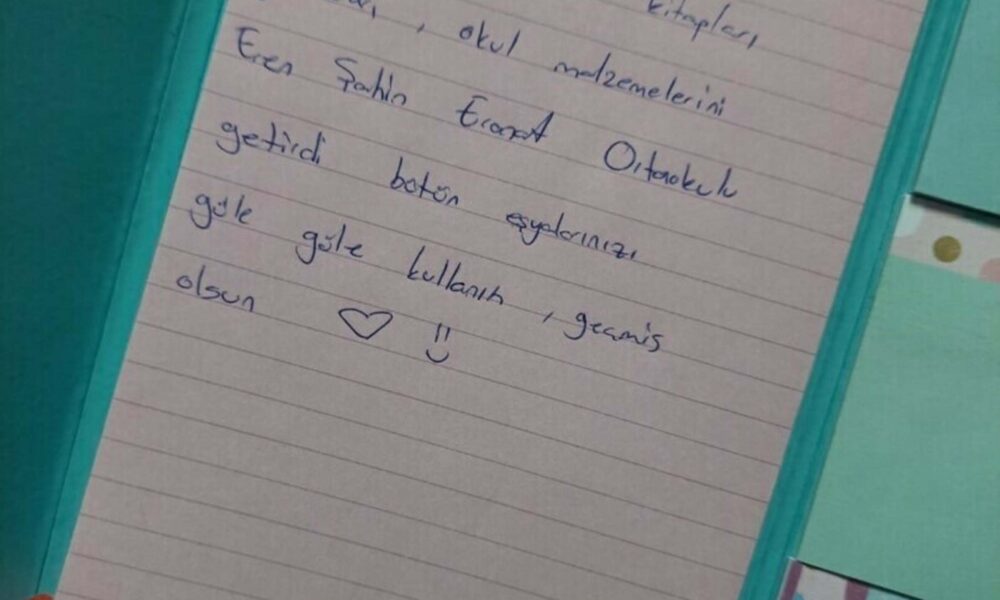 kitapları
, okul malzemelerini
Eren Şahin Eronat Ortaokulu
getirdi bütün eşyalarınızı
güle güle kullanın, geçmiş
olsun ♡ :)